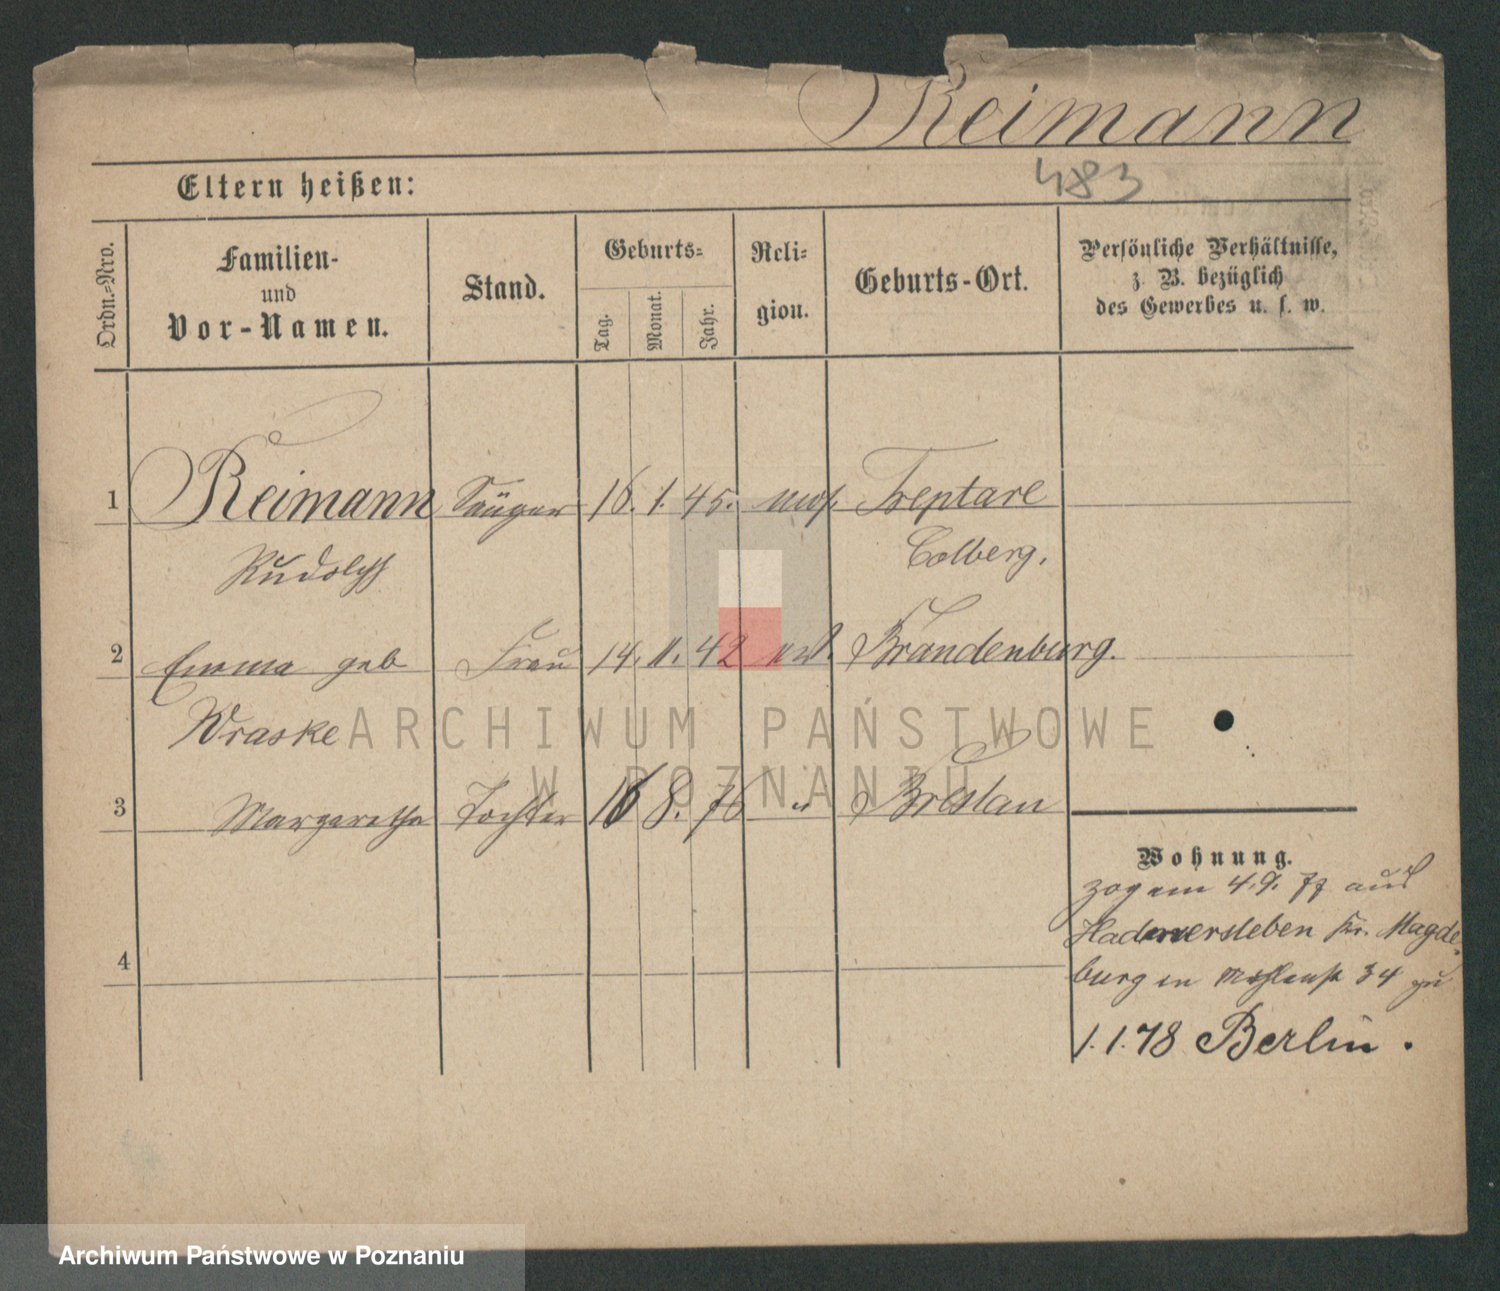 Reimann
483
Eltern heißen:
Ordn.-Nro.
Familien-
und
Vor-Namen.
Stand.
Geburts-
Tag.
Monat.
Jahr.
Reli-
gion.
Geburts-Ort.
Persönliche Verhältnisse,
z. B. bezüglich
des Gewerbes u. s. w.
1 Reimann Sänger 16. 1. 45. Treptare
Rudolph Colberg.
2 Emma geb Frau 14. 11. 42 Brandenburg.
Wraske
3 Margarethe Tochter 16 8. 76 " Breslau
4
Wohnung.
zog am 4.9. 77 aus
Hadmersleben Kr. Magde-
burg in 34 zu
1.1.78 Berlin.
ARCHIWUM PAŃSTWOWE
W POZNANIU
Archiwum Państwowe w Poznaniu